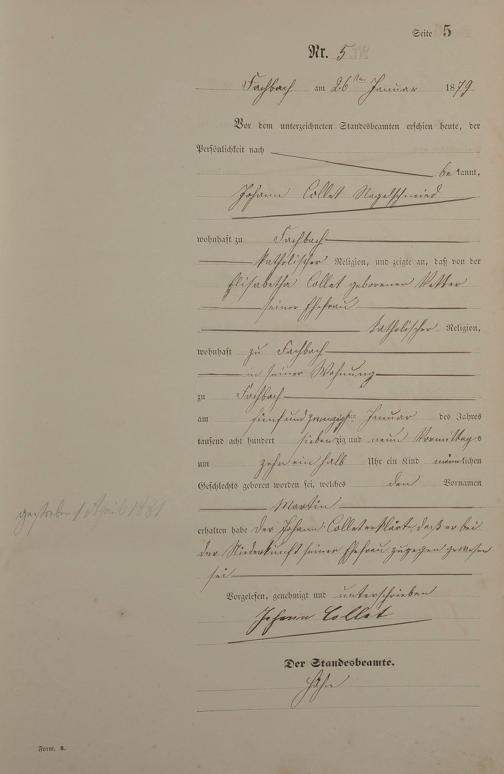 Seite 5
Nr. 5
Fachbach am 26ten Januar 1879
Vor dem unterzeichneten Standesbeamten erschien heute, der
Persönlichkeit nach
be kannt,
Johann Collet Nagelschmied
wohnhaft zu Fachbach
katholischer Religion, und zeigte an, daß von der
Elisabetha Collet geborenen Vetter
seiner Ehefrau
katholischer Religion,
wohnhaft zu Fachbach
in seiner Wohnung
zu Fachbach
am fünfundzwanzigsten Januar des Jahres
tausend acht hundert siebenzig und neun Vormittags
um zehn ein halb Uhr ein Kind männlichen
Geschlechts geboren worden sei, welches den Vornamen
Martin
gestorben 1 April 1881
erhalten habe der Johann Collet erklärte daß er bei
der Niederkunft seiner Ehefrau zugegen gewesen
sei
Vorgelesen, genehmigt und unterschrieben
Johann Collet
Der Standesbeamte.
Form.